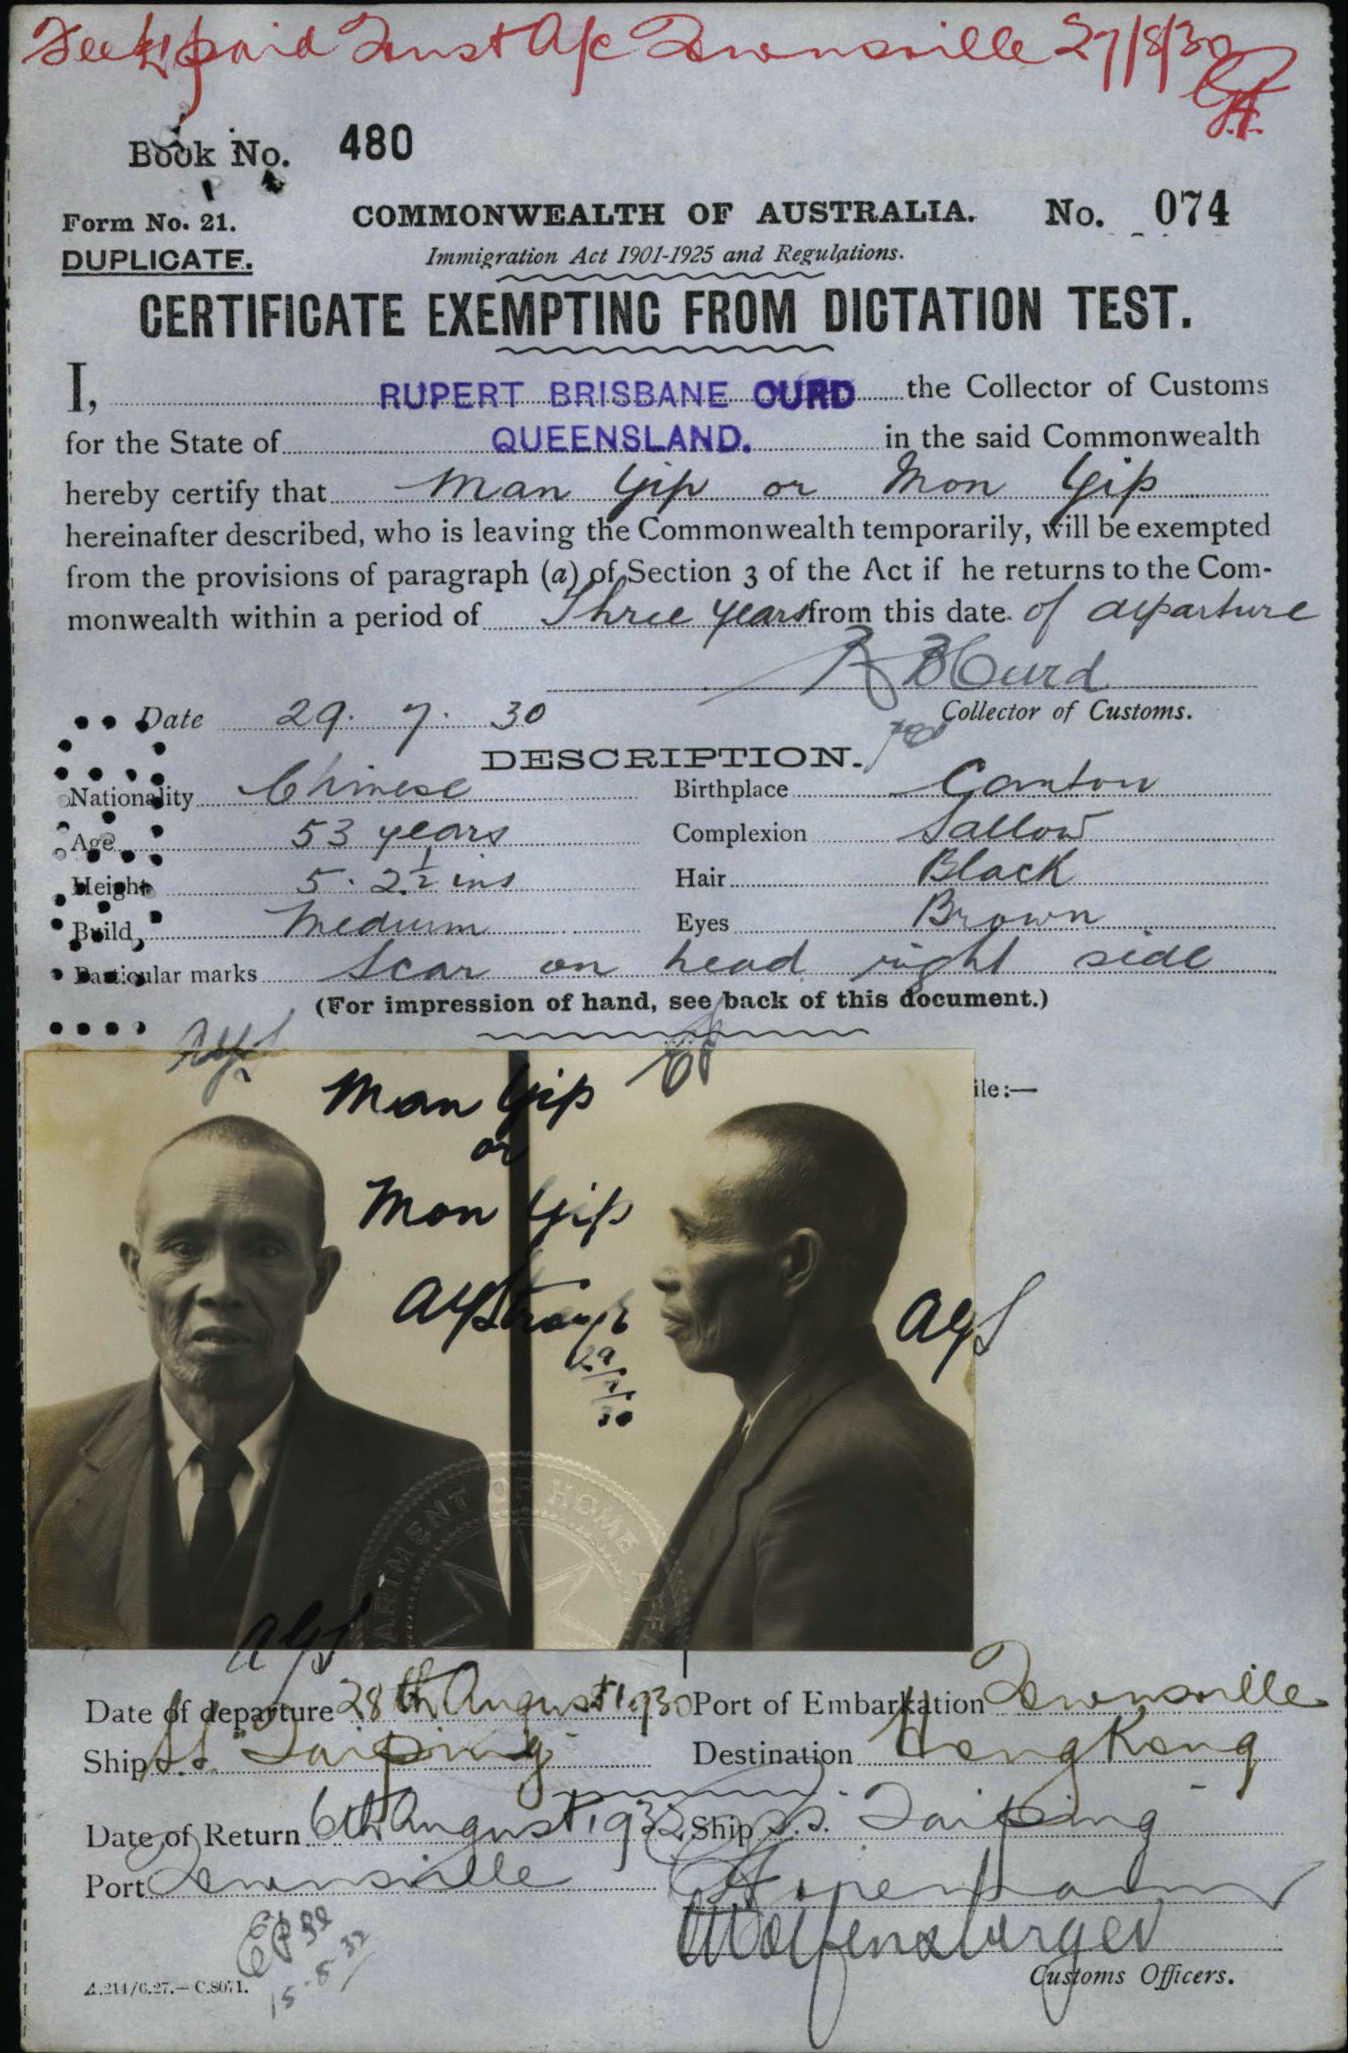 Fee £1 paid Trust A/c Townsville 27/8/30
Book No. 480
Form No. 21.
COMMONWEALTH OF AUSTRALIA.
No. 074
DUPLICATE.
Immigration Act 1901-1925 and Regulations.
CERTIFICATE EXEMPTING FROM DICTATION TEST.
I, RUPERT BRISBANE CURD the Collector of Customs
for the State of QUEENSLAND. in the said Commonwealth
hereby certify that Man Gip or Mon Gip
hereinafter described, who is leaving the Commonwealth temporarily, will be exempted
from the provisions of paragraph (a) of Section 3 of the Act if he returns to the Com-
monwealth within a period of Three years from this date of departure
R B Curd
Date 29. 7. 30
Collector of Customs.
DESCRIPTION.
Nationality Chinese Birthplace Canton
Age 53 years Complexion Sallow
Height 5. 2 1/2 ins Hair Black
Build Medium Eyes Brown
Particular marks Scar on head right side
(For impression of hand, see back of this document.)
ile:—
Man Gip
or
Mon Gip
29/7/30
AGS
DEPARTMENT OF HOME
AGS
Date of departure 28th August 1930 Port of Embarkation Townsville
Ship S.S. "Taiping" Destination Hong Kong
Date of Return 6th August 1932 Ship S.S. "Taiping"
Port Townsville
15.8.32
Customs Officers.
A.214/6.27.—C.8071.